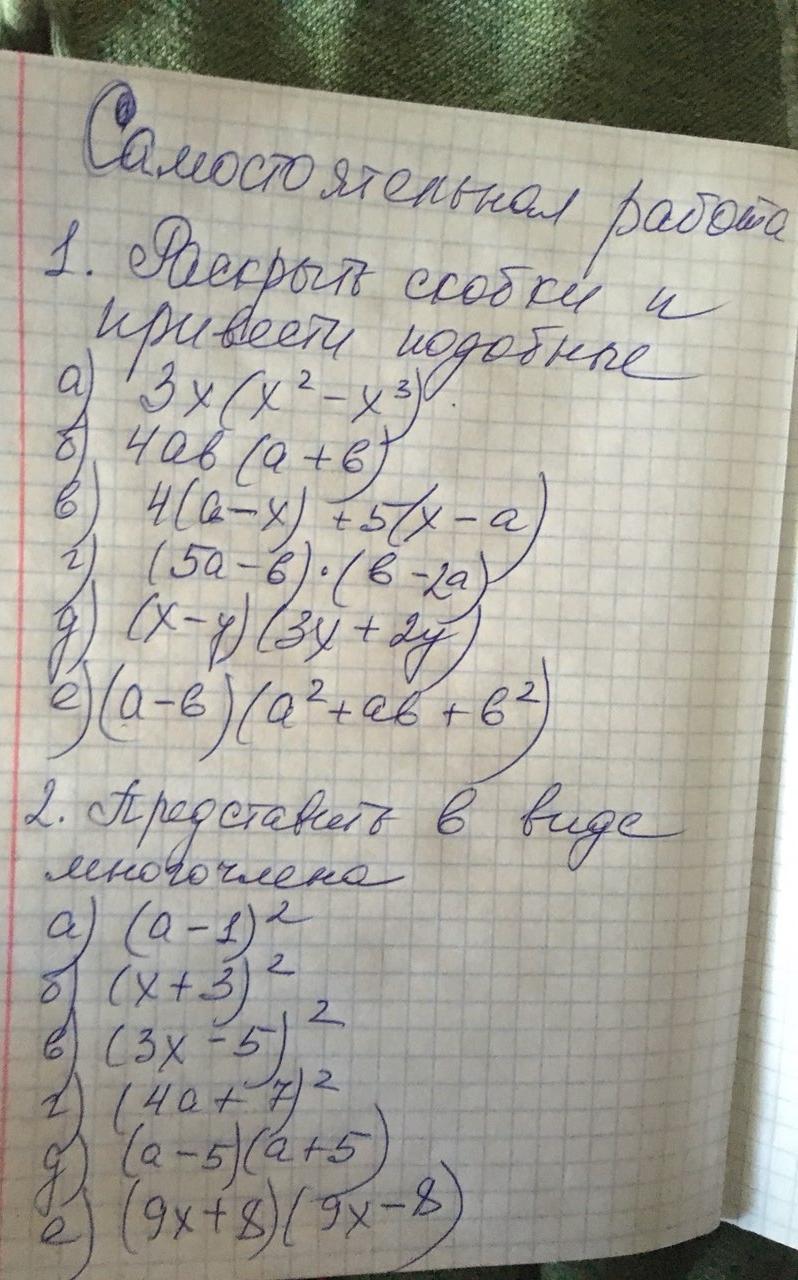 Самостоятельная работа
1. Раскрыть скобки и
привести подобные
а) 3x(x² - x³)
б) 4ав(а + в)
в) 4(а - x) + 5(x - а)
г) (5а - в)·(в - 2а)
д) (x - y)(3x + 2y)
е) (а - в)(а² + ав + в²)
2. Представить в виде
многочлена
а) (а - 1)²
б) (x + 3)²
в) (3x - 5)²
г) (4а + 7)²
д) (а - 5)(а + 5)
е) (9x + 8)(9x - 8)